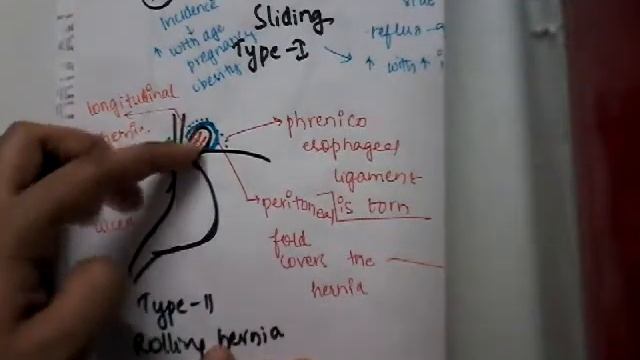 Incidence
↑ with age
pregnancy
obesity
Sliding
Type-I
reflux
↑ with ↑
longitudinal
hernia
phrenico
esophageel
ligament
is torn
peritoneal
fold
covers the
hernia
ulcer
Type-II
Rolling hernia